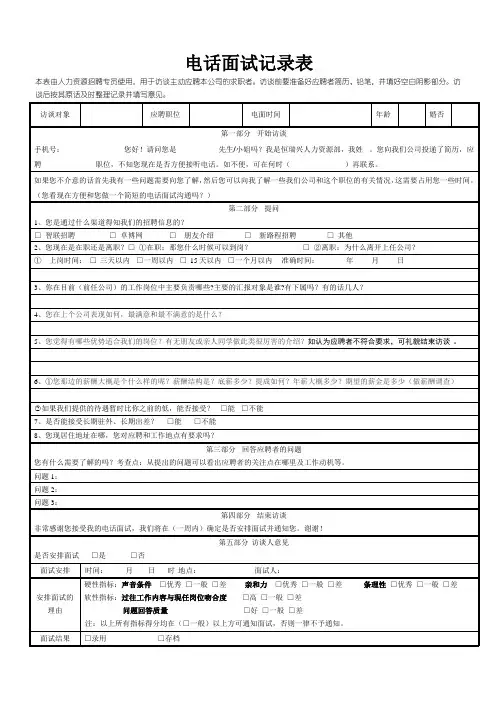 电话面试记录表
本表由人力资源招聘专员使用，用于访谈主动应聘本公司的求职者。访谈前要准备好应聘者简历、铅笔，并填好空白阴影部分。访
谈后按其原话及时整理记录并填写意见。
访谈对象 应聘职位 电面时间 年龄 婚否
第一部分 开始访谈
手机号： 您好！请问您是 先生/小姐吗？我是恒瑞兴人力资源部，我姓 。您向我们公司投递了简历，应
聘 职位，不知您现在是否方便接听电话。如不便，可在何时（ ）再联系。
如果您不介意的话首先我有一些问题需要向您了解，然后您可以向我了解一些我们公司和这个职位的有关情况，这需要占用您一些时间。
（您看现在方便和您做一个简短的电话面试沟通吗？）
第二部分 提问
1、您是通过什么渠道得知我们的招聘信息的？
□ 智联招聘 □ 卓博网 □ 朋友介绍 □ 新路程招聘 □ 其他
2、您现在是在职还是离职？□ ①在职：那您什么时候可以到岗？ □ ②离职：为什么离开上任公司？
① 上岗时间：□ 三天以内 □一周以内 □ 15天以内 □一个月以内 准确时间： 年 月 日
3、你在目前（前任公司）的工作岗位中主要负责哪些?主要的汇报对象是谁?有下属吗？有的话几人？
4、您在上个公司表现如何，最满意和最不满意的是什么？
5、您觉得有哪些优势适合我们的岗位？有无朋友或亲人同学做此类报厉害的介绍？如认为应聘者不符合要求，可礼貌结束访谈 。
6、①您那边的薪酬大概是个什么样的呢？薪酬结构是？底薪多少？提成如何？年薪大概多少？期望的薪金是多少（做薪酬调查）
②如果我们提供的待遇暂时比你之前的低，能否接受？ □能 □不能
7、是否能接受长期驻外、长期出差？ □能 □不能
8、您现居住地址在哪，您对应聘和工作地点有要求吗？
第三部分 回答应聘者的问题
您有什么需要了解的吗？考查点：从提出的问题可以看出应聘者的关注点在哪里及工作动机等。
问题1：
问题2：
问题3：
第四部分 结束访谈
非常感谢您接受我的电话面试，我们将在（一周内）确定是否安排面试并通知您。谢谢！
第五部分 访谈人意见
是否安排面试 □是 □否
面试安排 时间： 月 日 时 地点： 面试人：
安排面试的理由 硬性指标：声音条件 □优秀 □一般 □差 亲和力 □优秀 □一般 □差 条理性 □优秀 □一般 □差
软性指标：过往工作内容与现任岗位吻合度 □高 □一般 □差
问题回答质量 □好 □一般 □差
注：以上所有指标得分均在（□一般）以上方可通知面试，否则一律不予通知。
面试结果 □录用 □存档